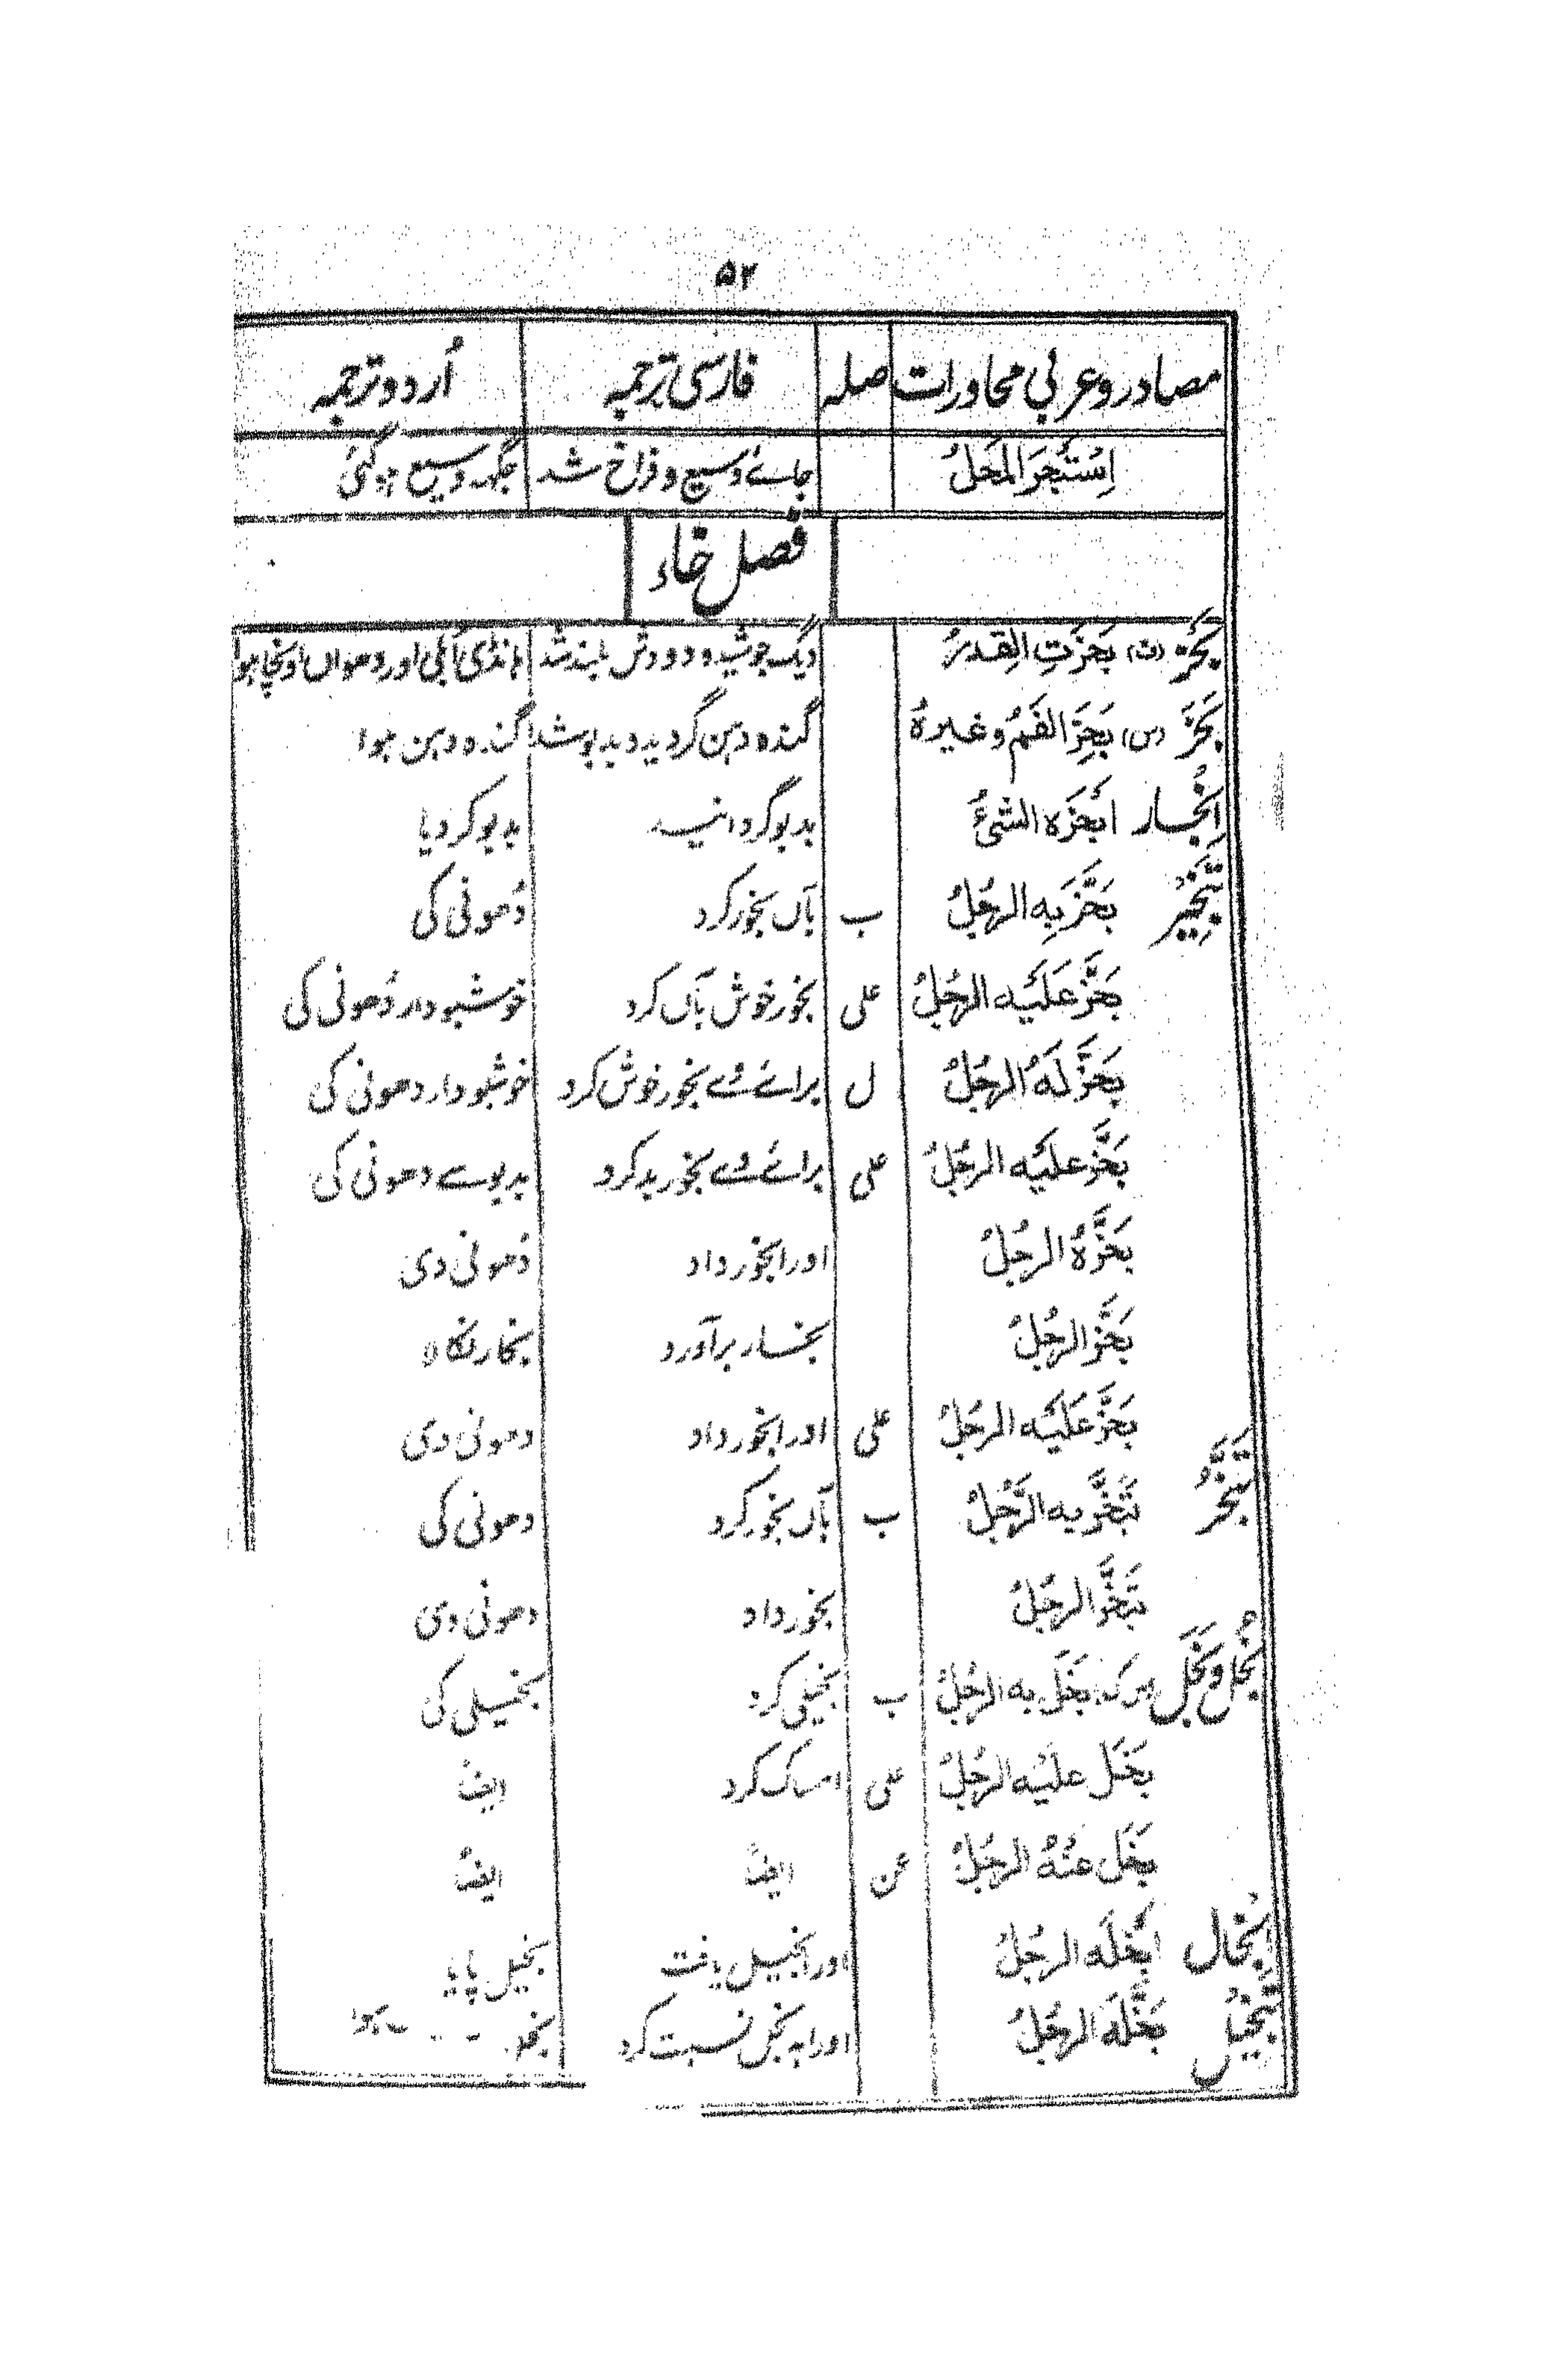 ۵۲
مصادر و عربی محاورات صلہ فارسی ترجمہ اُردو ترجمہ
اِسْتَبْحَرَ المَحَلُّ جائے وسیع و فراخ شد جگہ وسیع ہوگئی
فصل خاء
بَخْر (ف) بَخَرَتِ القِدرُ دیگ جوشید و دودش بلند شد ہانڈی اُبلی اور دھواں اونچا ہوا
بَخَر (س) بَخِرَ الفَمُ وغیرہُ گندہ دہن گردید و بدبو شد گندہ دہن ہوا
اِبْخار اَبخَرَہ الشیُٔ بدبو گردانید بدبو کردیا
تَبْخِیْر بَخَّرَ بِہ الرجُلُ ب بآں بخور کرد دُھونی کی
بَخَّرَ عَلَیْہ الرجُلُ علی بخور خوش بآں کرد خوشبودار دُھونی کی
بَخَّرَ لَہُ الرجُلُ ل برائے وے بخور خوش کرد خوشبودار دھونی کی
بَخَّرَ عَلَیْہ الرجُلُ علی برائے وے بخور بد کرد بدبوسے دھونی کی
بَخَّرَہُ الرجُلُ اورا بخور داد دُھونی دی
بَخَّرَ الرجُلُ بخار برآورد بخار نکالا
بَخَّرَ عَلَیْہ الرجُلُ علی اورا بخور داد دھونی دی
تَبَخُّرْ تَبَخَّرَ بہ الرَّجُلُ ب بآں بخور کرد دھونی کی
تَبَخَّرَ الرجُلُ بخور داد دھونی دی
بُخْل وَ بَخَل (س ک) بَخَلَ بہ الرجُلُ ب بخیلی کرد بخیلی کی
بَخَلَ علَیْہ الرجُلُ علی امساک کرد ایضاً
بَخَلَ عَنْہُ الرجُلُ عن ایضاً ایضاً
اِبْخال اَبْخَلَہ الرجُلُ اورا بخیل یافت بخیل پایا
تَبْخِیْل بَخَّلَہ الرجُلُ اورا بہ بخل نسبت کرد ہوا